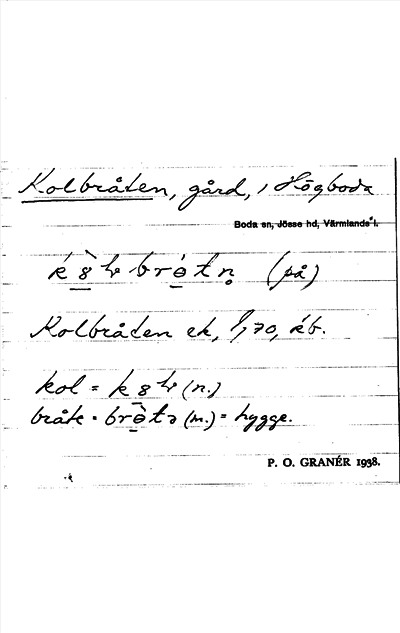 Kolbråten, gård, i Högboda
Boda sn, Jösse hd, Värmlands l.
(på)
Kolbråten ek, 1/170, kb.
kol = (n.)
bråte = (m.) = hygge.
P. O. GRANÉR 1938.